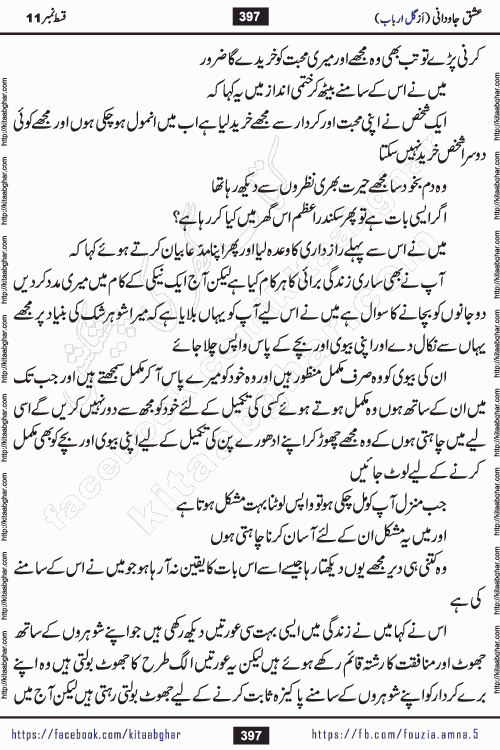 عشق جاودانی (از گل ارباب) 397 قسط نمبر 11
کرنی پڑے تو تب بھی وہ مجھے اور میری محبت کو خریدے گا ضرور
میں نے اس کے سامنے بیٹھ کر حتمی انداز میں یہ کہا کہ
ایک شخص نے اپنی محبت اور کردار سے مجھے خرید لیا ہے اب میں انمول ہو چکی ہوں اور مجھے کوئی
دوسرا شخص خرید نہیں سکتا
وہ دم بخود سا مجھے حیرت بھری نظروں سے دیکھ رہا تھا
اگر ایسی بات ہے تو پھر سکندر اعظم اس گھر میں کیا کر رہا ہے؟
میں نے اس سے پہلے رازداری کا وعدہ لیا اور پھر اپنا مدعا بیان کرتے ہوئے کہا کہ
آپ نے بھی ساری زندگی برائی کا ہر کام کیا ہے لیکن آج ایک نیکی کے کام میں میری مدد کر دیں
دو جانوں کو بچانے کا سوال ہے میں نے اس لیے آپ کو یہاں بلایا ہے کہ میرا شوہر شک کی بنیاد پر مجھے
یہاں سے نکال دے اور اپنی بیوی اور بچے کے پاس واپس چلا جائے
ان کی بیوی کو وہ صرف مکمل منظور ہیں اور وہ خود کو میرے پاس آ کر مکمل سمجھتے ہیں اور جب تک
میں ان کے ساتھ ہوں وہ مکمل ہوتے ہوئے کسی کی تکمیل کے لئے خود کو مجھ سے دور نہیں کریں گے اسی
لیے میں چاہتی ہوں کے وہ مجھے چھوڑ کر اپنے ادھورے پن کی تکمیل کے لیے اپنی بیوی اور بچے کو بھی مکمل
کرنے کے لیے لوٹ جائیں
جب منزل آپ کو مل چکی ہو تو واپس لوٹنا بہت مشکل ہوتا ہے
اور میں یہ مشکل ان کے لئے آسان کرنا چاہتی ہوں
وہ کتنی ہی دیر مجھے یوں دیکھتا رہا جیسے اسے اس بات کا یقین نہ آ رہا ہو جو میں نے اس کے سامنے
کی ہے
اس نے کہا میں نے زندگی میں ایسی بہت سی عورتیں دیکھ رکھی ہیں جو اپنے شوہروں کے ساتھ
جھوٹ اور منافقت کا رشتہ قائم رکھے ہوئے ہیں لیکن یہ عورتیں الگ طرح کا جھوٹ بولتی ہیں وہ اپنے
برے کردار کو اپنے شوہروں کے سامنے پاکیزہ ثابت کرنے کے لیے جھوٹ بولتی رہتی ہیں لیکن آج میں
https://facebook.com/kitaabghar 397 https://fb.com/fouzia.amna.5
http://kitaabghar.com